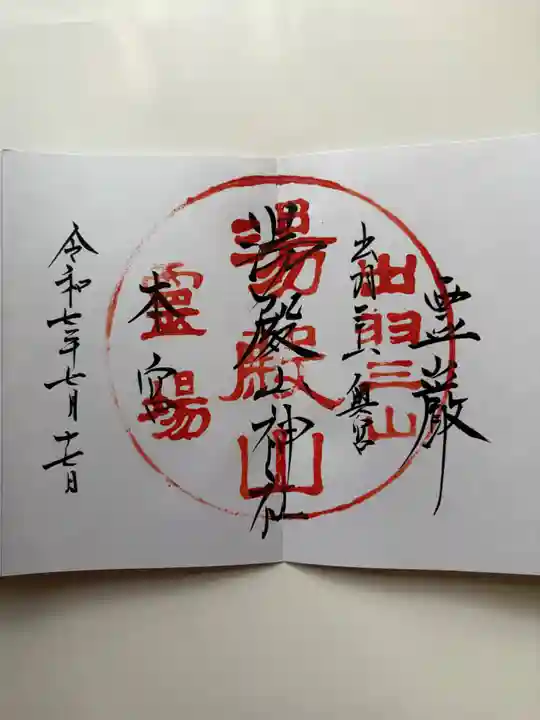 霊巌
出羽国奥宮
湯殿山神社
本宮
令和七年七月十七日
出羽三山
湯殿山
霊場